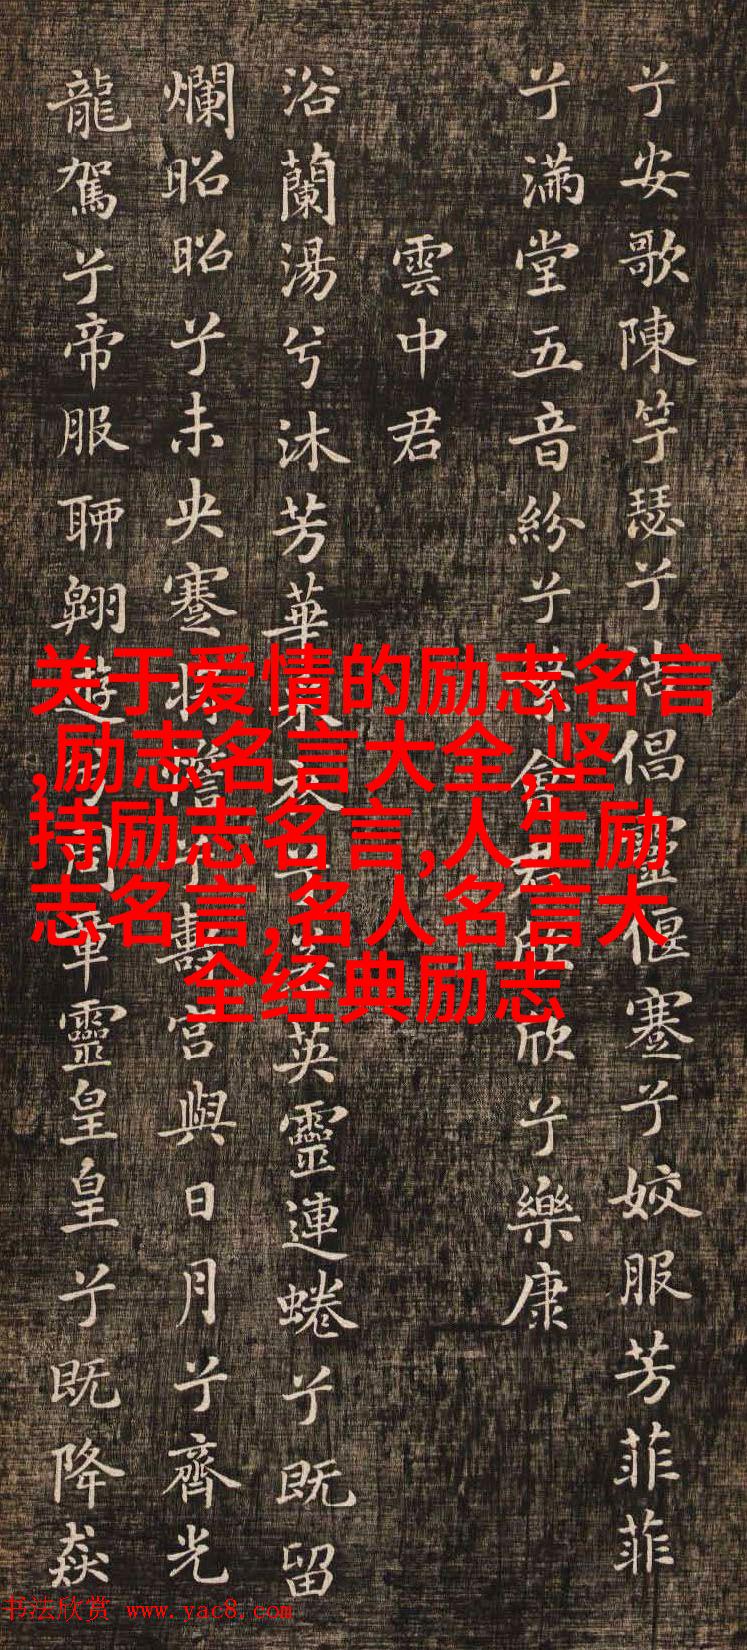 兮安歌陳竽瑟兮浩倡靈偃蹇兮姣服芳菲菲
兮滿堂五音紛兮繁會君欣欣兮樂康
雲中君
浴蘭湯兮沐芳華采衣兮若英靈連蜷兮既留
爛昭昭兮未央蹇將憺兮壽宮與日月兮齊光
龍駕兮帝服聊翱遊兮周章靈皇皇兮既降猋
关于爱情的励志名言
,励志名言大全,坚
持励志名言,人生励
志名言,名人名言大
全经典励志
书法欣赏 www.yac8.com